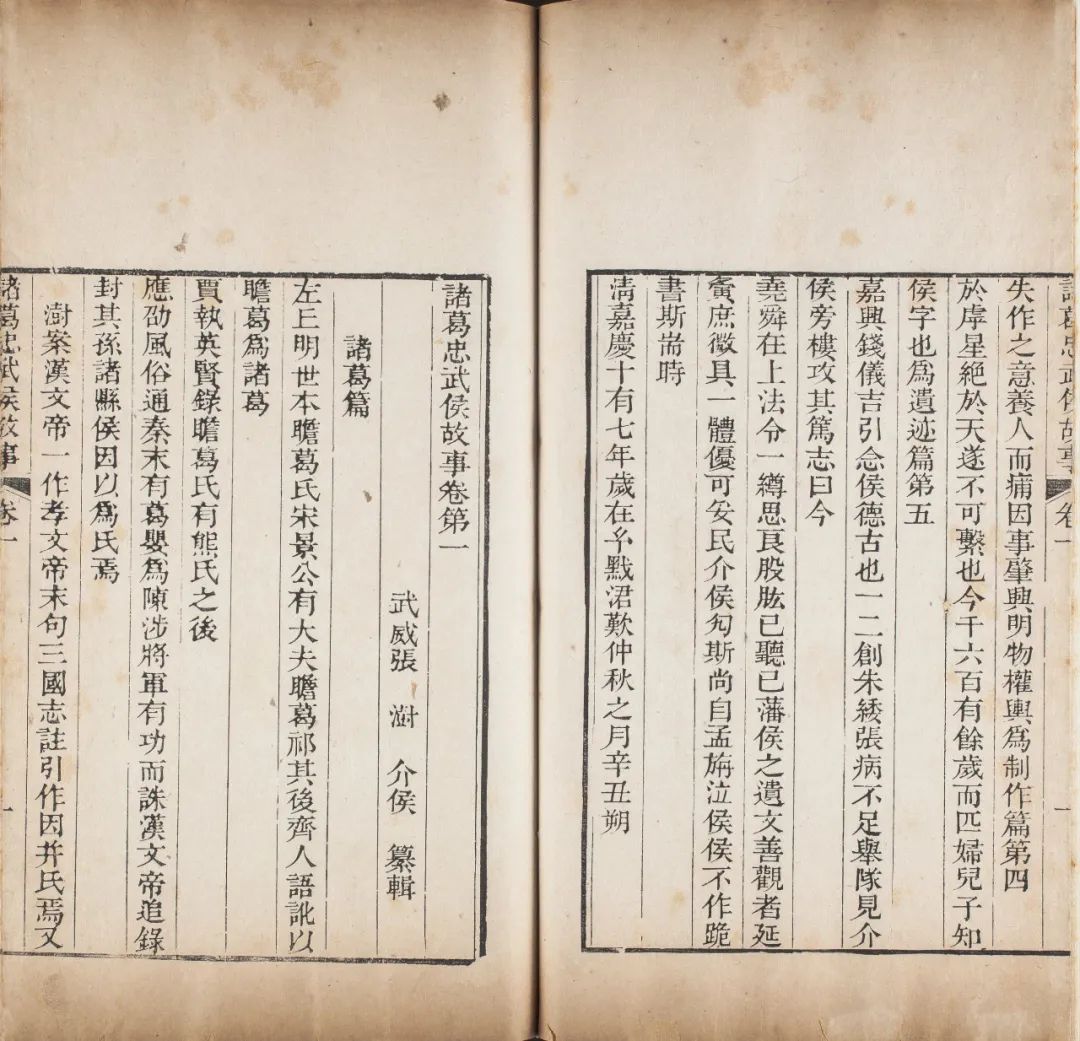 諸葛忠武侯故事 卷一 一
失作之意養人而痡因事肇興明物權輿爲制作篇第四
於虖星絕於天遂不可繫也今千六百有餘歲而匹婦兒子知
侯字也爲遺迹篇第五
嘉興錢儀吉引念侯德古也一二創朱緌張病不足舉隊見介
侯旁樓攻其篤志曰今
堯舜在上法令一縛思良股肱已聽已藩侯之遺文善觀者延
夤庶微具一體優可安民介侯匃斯尚自孟旃泣侯侯不作跪
書斯耑時
淸嘉慶十有七年歲在玄黓涒歎仲秋之月辛丑朔
諸葛忠武侯故事卷第一
武威張 澍 介侯 纂輯
諸葛篇
左丘明世本瞻葛氏宋景公有大夫瞻葛祁其後齊人語訛以
瞻葛爲諸葛
賈執英賢錄瞻葛氏有熊氏之後
應劭風俗通秦末有葛嬰爲陳涉將軍有功而誅漢文帝追錄
封其孫諸縣侯因以爲氏焉
澍案漢文帝一作孝文帝末句三國志註引作因并氏焉又
諸葛忠武侯故事 卷一 一